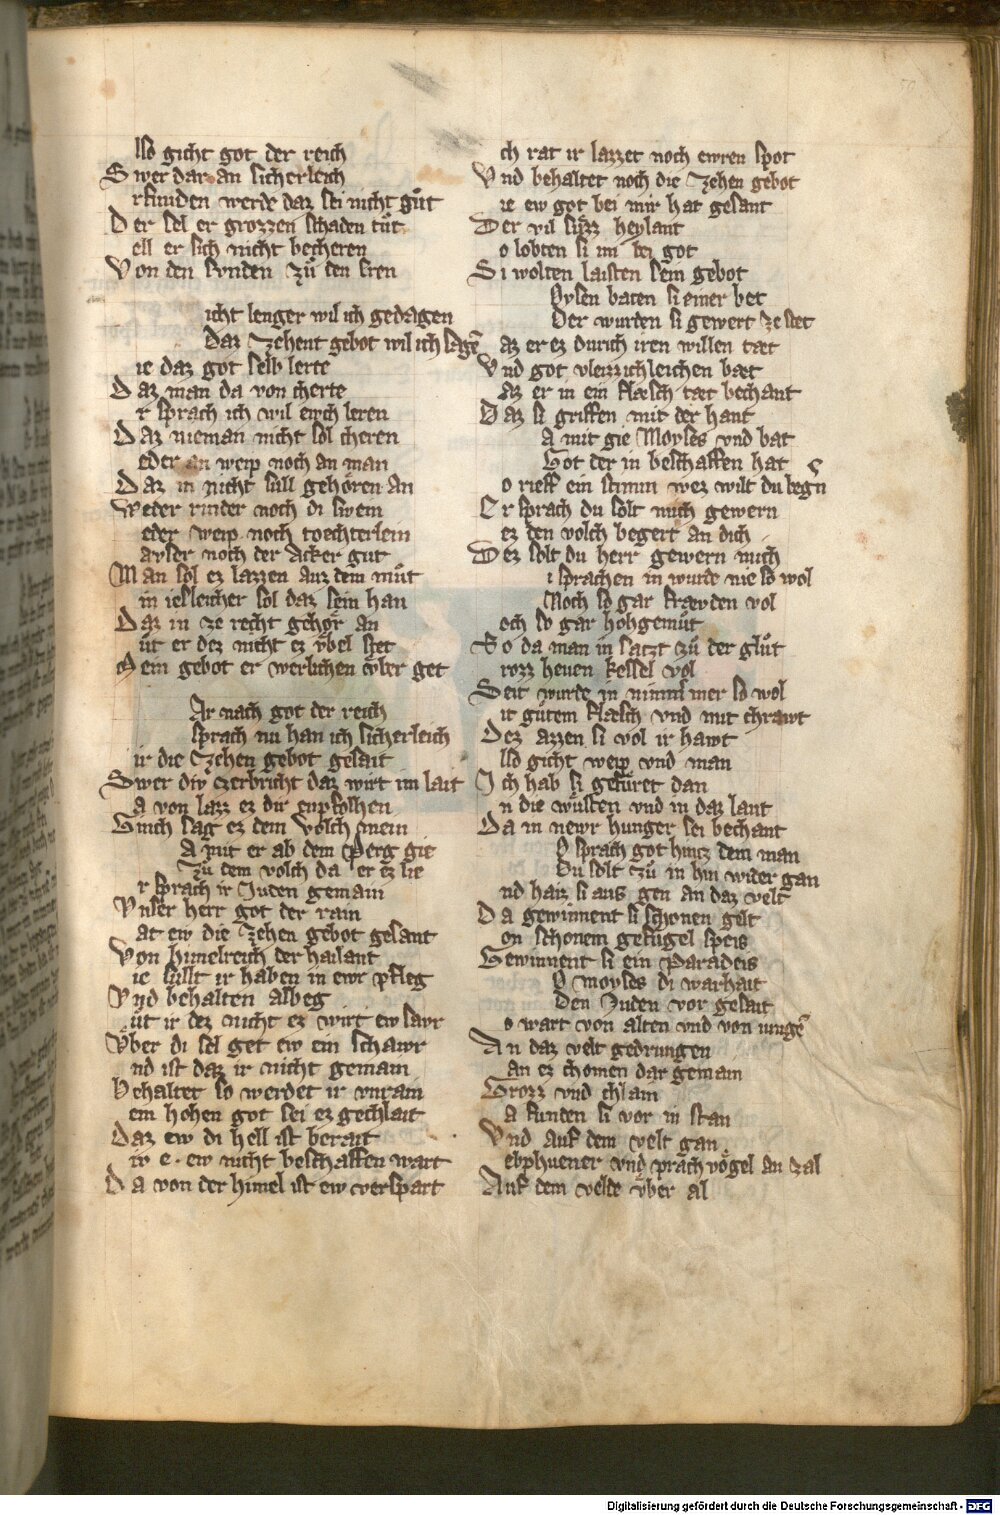 lso gicht got der reich
Swer dar an sicherleich
rfunden werde daz sei nicht gůt
Der sel er grozzen schaden tůt
ell er sich nicht becheren
Von den sunden zů den eren
icht lenger wil ich gedagen
Daz zehent gebot wil ich sagē
ie daz got selb lerte
Daz man da von cherte
r sprach ich wil ewch leren
Daz nieman nicht sol cheren
eder an weip noch an man
Daz in nicht sull gehoren an
Weder rinder noch di swein
eder weip noch toechterlein
ayser noch der acker gut
Man sol ez lazzen auz dem můt
in iesleicher sol daz sein han
Daz in ze recht gehör an
ůt er dez nicht ez vbel stet
Mein gebot er werlichen vber get
Ar nach got der reich
sprach nu han ich sicherleich
ir die zehen gebot gesait
Swer diw zerbricht daz wirt im lait
a von lazz ez dir enpfolhen
Vnich sag ez dem volch mein
A mit er ab dem perg gie
Zů dem volch da er ez lie
r sprach ir Juden gemain
Vnser herr got der rain
at ew die zehen gebot gesant
Von himelreich der hailant
ie sullt ir haben in ewr pfleg
Vnd behalten albeg
ůt ir dez nicht ez wirt ew sawr
Vber di sel get ew ein schawr
nd ist daz ir nicht gemain
Behaltet so werdet ir vnrain
em hohen got sei ez gechlait
Daz ew di hell ist berait
iv e . ew nicht beschaffen wart
Da von der himel ist ew verspart
ch rat ir lazzet noch ewren spot
Vnd behaltet noch die zehen gebot
ie ew got bei mir hat gesant
Der vil suzz heylant
o lobten si im bei got
Si wolten laisten sein gebot
Oysen baten si einer bet
Der wurden si gewert ze stet
az er ez durich iren willen tæt
Vnd got vleizzichleichen bæt
Az er in ein flæsch tæt bechant
Daz si griffen mit der hant
A mit gie Moyses vnd bat
Got der in beschaffen hat
o rieff ein stimm wez wilt du begn
Er sprach du solt mich gewern
ez den volch begert an dich
Dez solt du herr gewern mich
i sprachen in wurde nie so wol
Noch so gar fræwden vol
och so gar hohgemůt
So da man in satzt zů der glůt
rozz heven kessel vol
Seit wurde in nimmer mer so wol
it gůtem flæsch vnd mit chrawt
Dez azzen si vol ir hawt
lso gicht weip vnd man
Ich hab si gefůret dan
n die wůsten vnd in daz lant
Da in newr hunger sei bechant
O sprach got hincz dem man
Du solt zů in hin wider gan
nd haiz si aus gen an daz velt
Da gewinnent si schonen gelt
on schonem gefugel speis
Gewinnent si ein Paradeis
O moyses di warhait
Den Juden vor gesait
o wart von alten vnd von iungē
An daz velt gedrungen
an ez chomen dar gemain
Grozz vnd chlain
a funden si vor in stan
Vnd auf dem velt gan
ebphuener vnd prach vögel an zal
Auf dem velde vber al
Digitalisierung gefördert durch die Deutsche Forschungsgemeinschaft - DFG